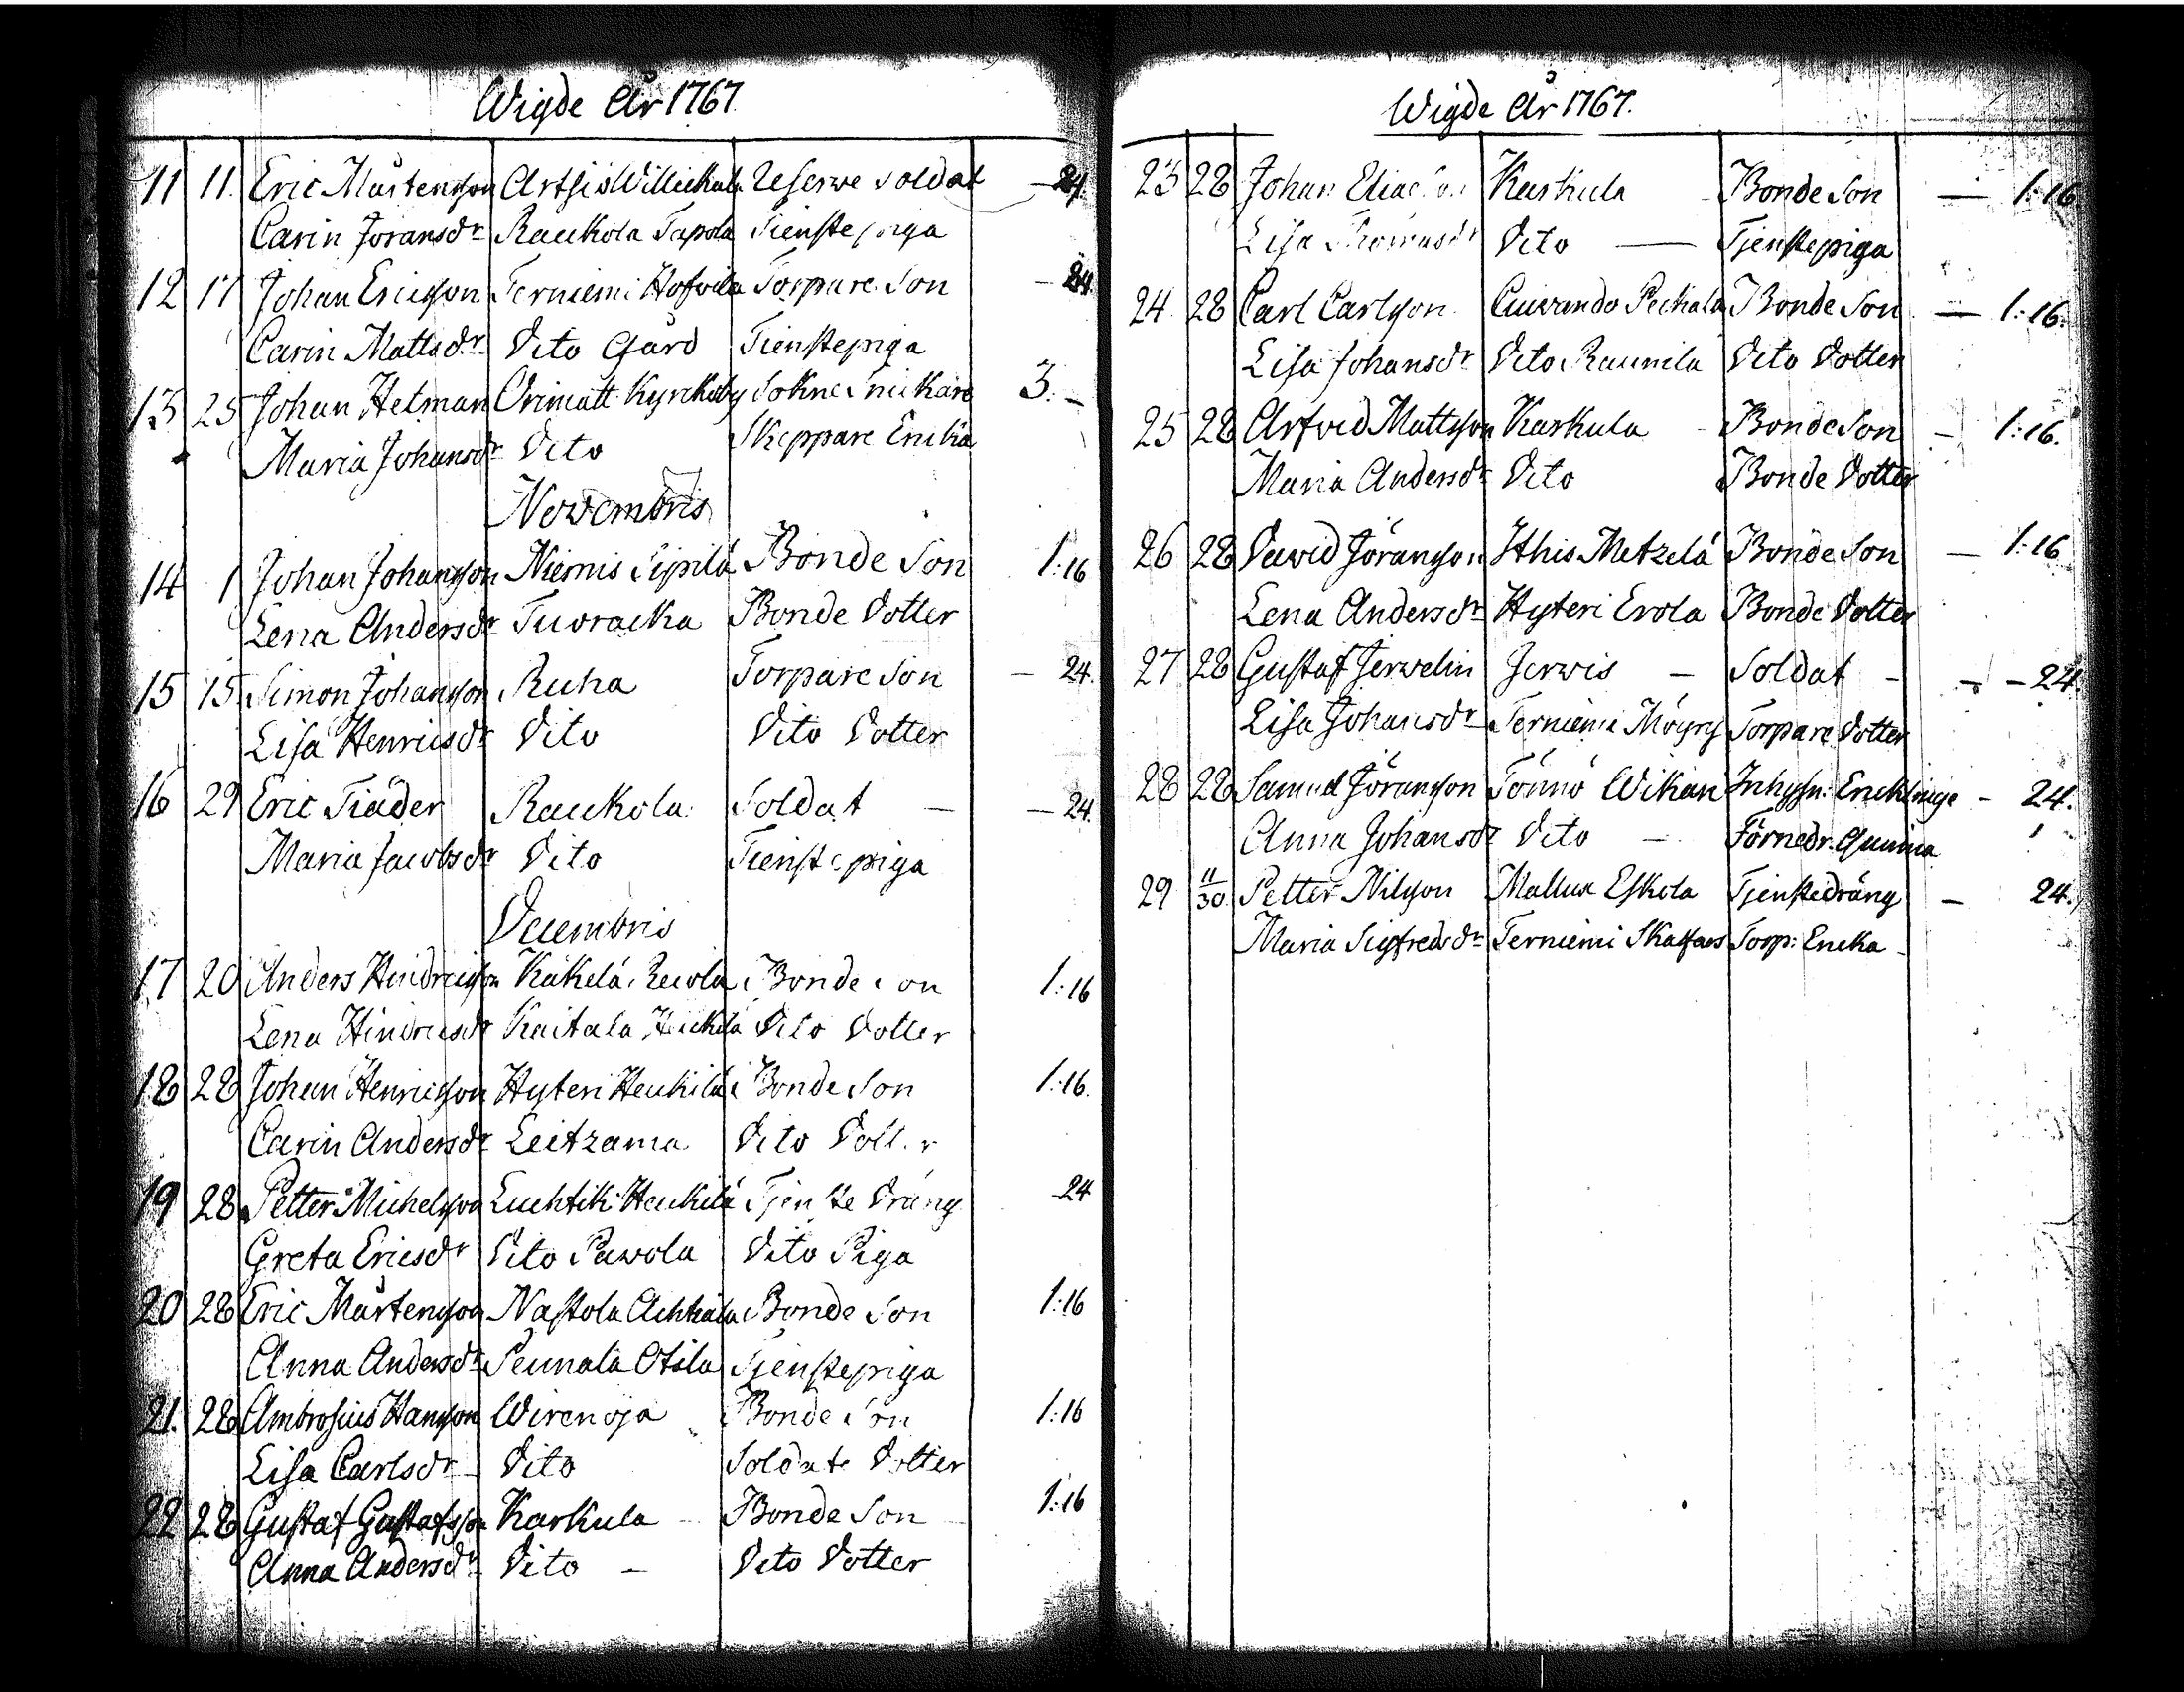 Wigde År 1767.
11 11. Eric Mårtensson Artsis Willickala Reserwe Soldat — 24.
Carin Joransdr Raukola Tapola Tienstepiga
12 11 Johan Ericsson Terniemi Hofvila Torpare Son — 24.
Carin Mattsdr Dito Gård Tienstepiga
13 25 Johan Helman Orimatt. Kyrckoby Sokne Snickare 3. —
Maria Johansdr Dito Skeppare Encka
Novembris
14 1 Johan Johansson Niemis Sipilä Bonde Son 1:16
Lena Andersdr Tuoracka Bonde Dotter
15 15 Simon Johansson Ruha Torpare Son — 24.
Lisa Henricsdr Dito Dito Dotter
16 29 Eric Tiäder Raukola Soldat — — 24.
Maria Jacobsdr Dito Tienstepiga
Decembris
17 20 Anders Hindricsson Käkelä Recola Bonde Son 1:16
Lena Hindricsdr Kaitala Heickilä Dito Dotter
18 28 Johan Henricsson Hyteri Heickilä Bonde Son 1:16.
Carin Andersdr Leitzama Dito Dotter
19 28 Petter Michelsson Luchtik: Heickilä Tjenste Dräng 24
Greta Ericsdr Dito Pawola Dito Piga
20 28 Eric Mårtensson Nastola Achkala Bonde Son 1:16
Anna Andersdr Peunala Otila Tjenstepiga
21. 28 Ambrosius Hansson Wirenoja Bonde Son 1:16
Lisa Carlsdr Dito Soldate Dotter
22 28 Gustaf Gustafsson Karkula Bonde Son 1:16
Anna Andersdr Dito — Dito Dotter
Wigde År 1767.
23 28 Johan Eliasson Karkula Bonde Son — 1:16.
Lisa Thomasdr Dito — Tjenstepiga
24 28 Carl Carlsson Cuivando Peckala Bonde Son — 1:16.
Lisa Johansdr Dito Raunila Dito Dotter
25 28 Arfved Mattsson Karkula Bonde Son — 1:16.
Maria Andersdr Dito Bonde Dotter
26 28 David Jöransson Ithis Metzelä Bonde Son — 1:16
Lena Andersdr Hyteri Erola Bonde Dotter
27 28 Gustaf Jerwelin Jerwis — Soldat — — 24.
Lisa Johansdr Terniemi Möyry Torpare Dotter
28 28 Samuel Jöransson Tönnö Wikari Inhyss: Encklinge — 24.
Anna Johansdr Dito — Förnedr. Quinna
29 11/30 Petter Nilsson Mallux Eskola Tjenstedräng — 24.
Maria Sigfredsdr Terniemi Torp: Encka